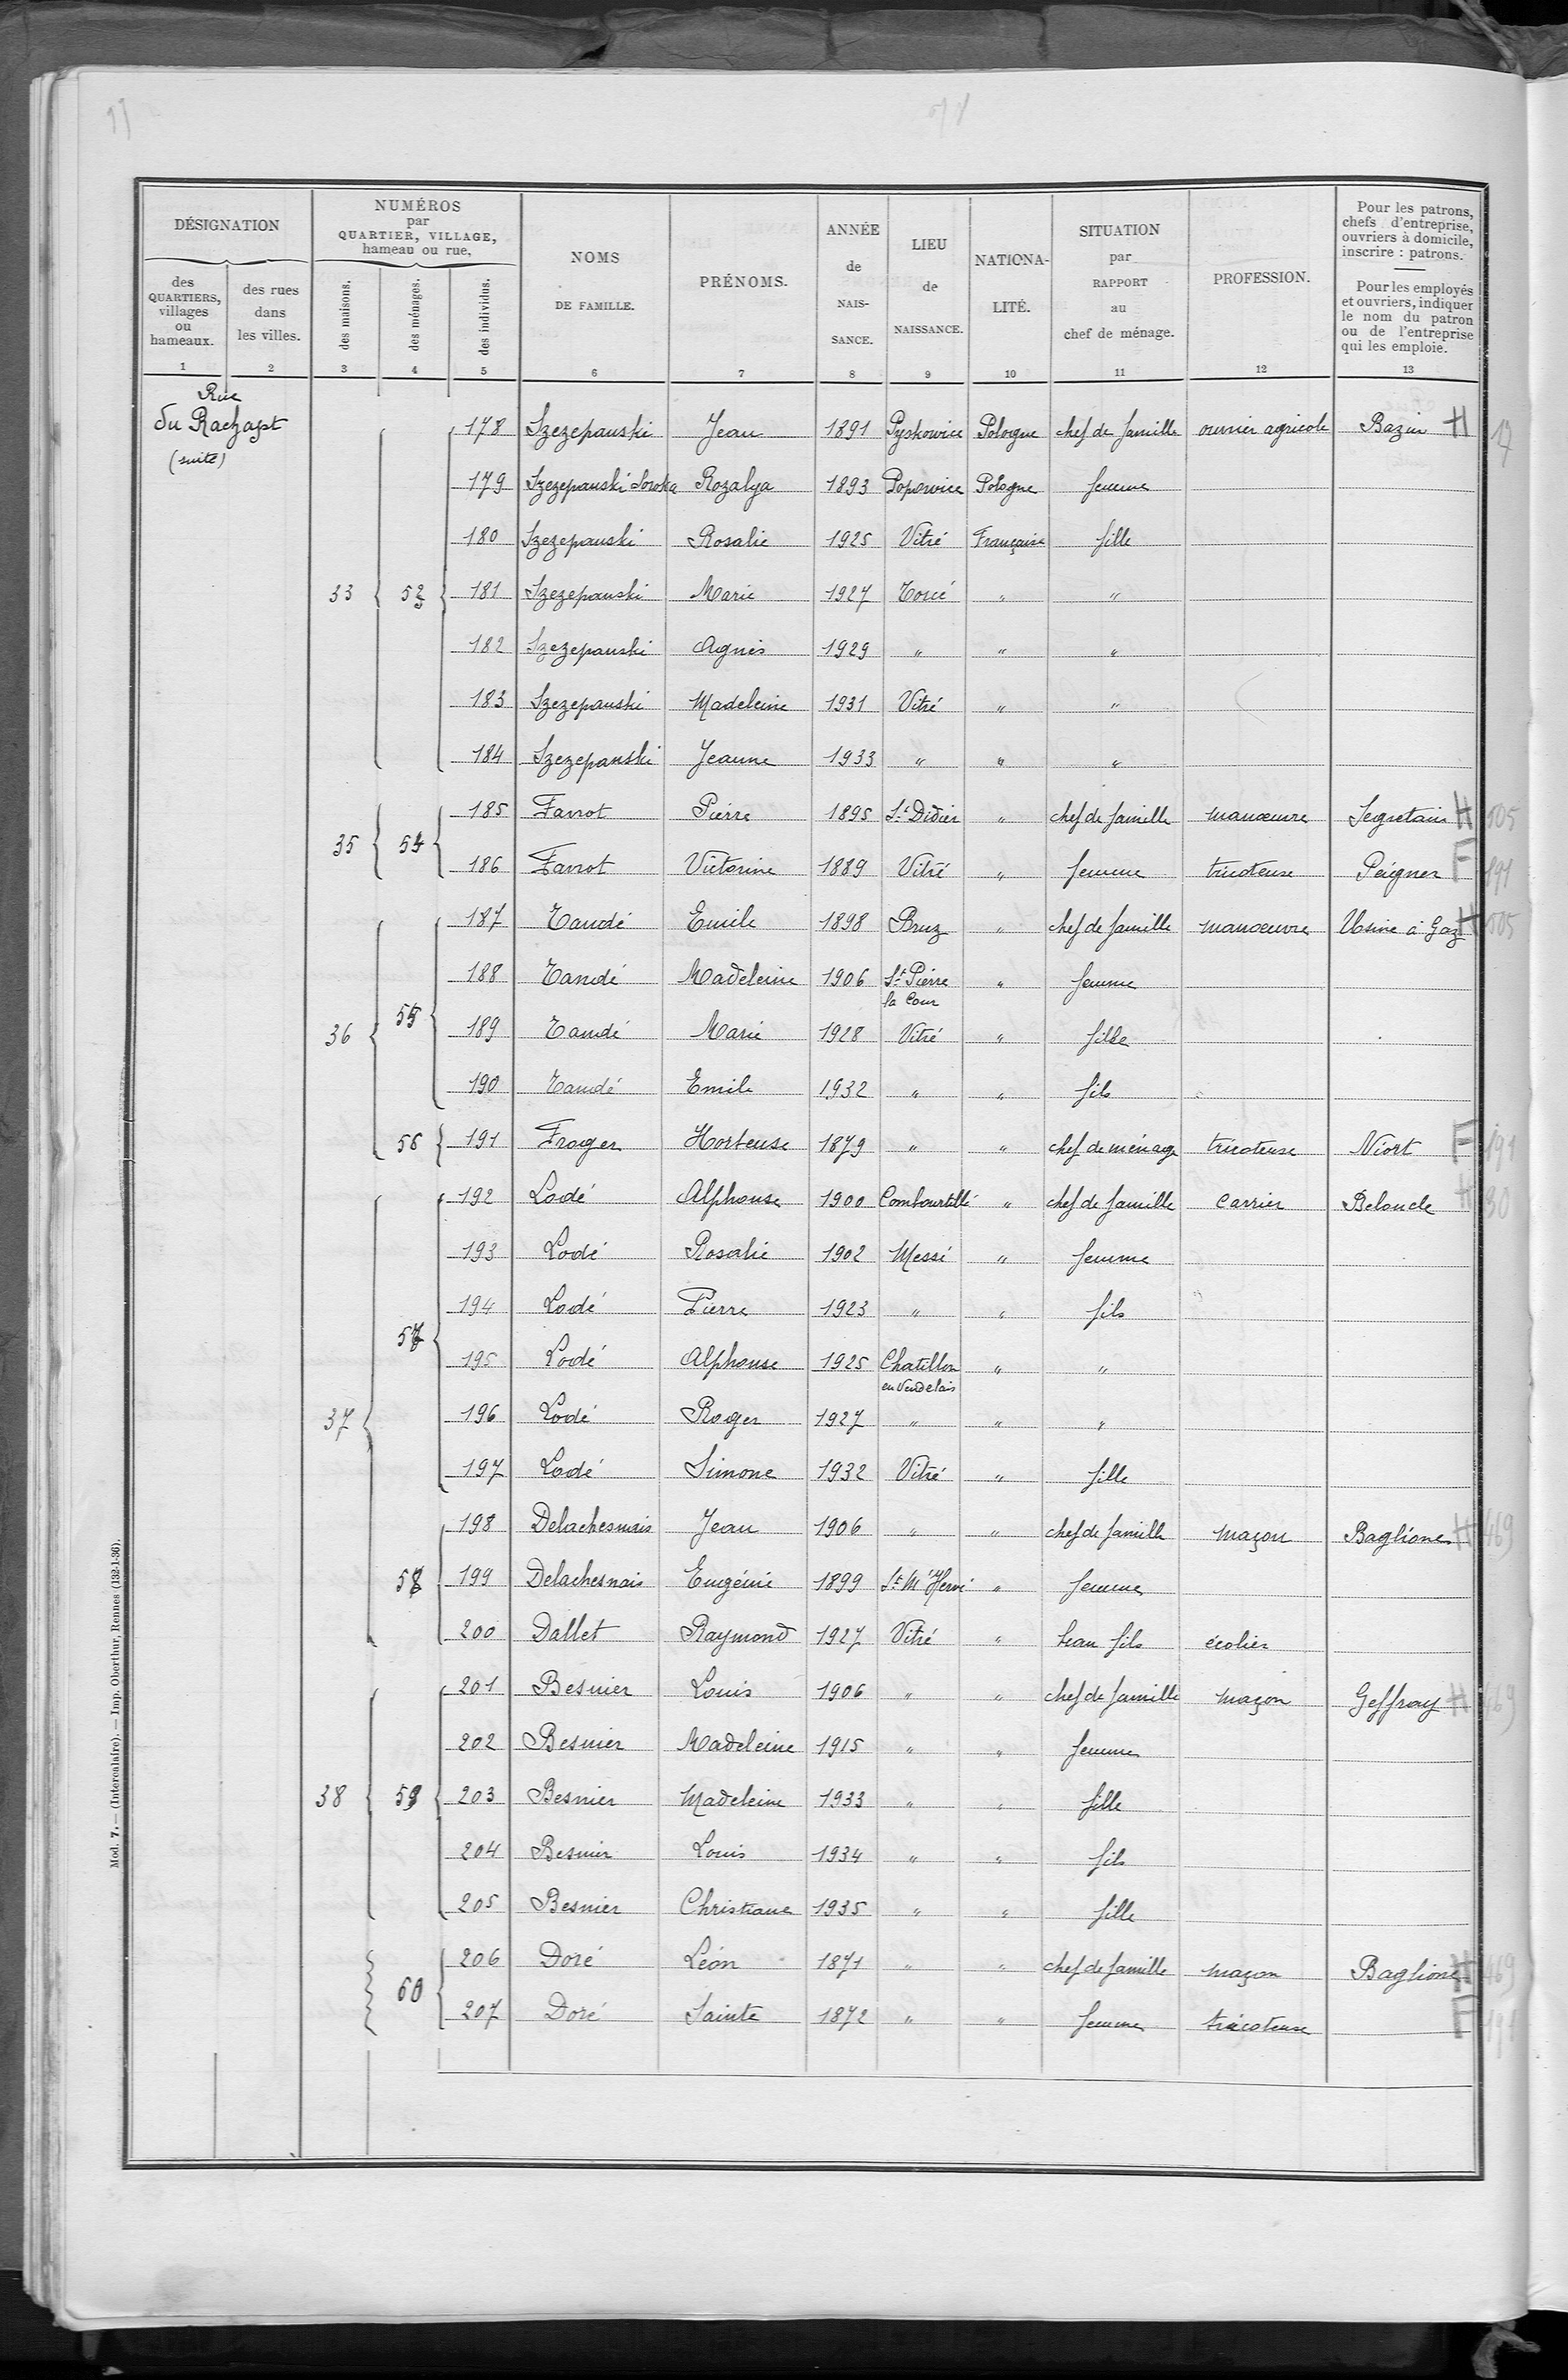 DÉSIGNATION
des QUARTIERS, villages ou hameaux.
des rues dans les villes.
NUMÉROS par QUARTIER, VILLAGE, hameau ou rue.
des maisons.
des ménages.
des individus.
NOMS DE FAMILLE.
PRÉNOMS.
ANNÉE de NAIS- SANCE.
LIEU de NAISSANCE.
NATIONA- LITÉ.
SITUATION par RAPPORT au chef de ménage.
PROFESSION.
Pour les patrons, chefs d'entreprise, ouvriers à domicile, inscrire : patrons.
Pour les employés et ouvriers, indiquer le nom du patron ou de l'entreprise qui les emploie.
1 2 3 4 5 6 7 8 9 10 11 12 13
Rue
du Rachapt
(suite)
178 Szezepanski Jean 1891 Pyskowice Pologne chef de famille ouvrier agricole Bazin H 17
179 Szezepanski Soroka Rozalya 1893 Popowice Pologne femme
180 Szezepanski Rosalie 1925 Vitré Française fille
33 53 181 Szezepanski Marie 1927 Torcé " "
182 Szezepanski Agnès 1929 " " "
183 Szezepanski Madeleine 1931 Vitré " "
184 Szezepanski Jeanne 1933 " " "
185 Farrot Pierre 1895 St Didier " chef de famille manœuvre Segretain H 505
35 54
186 Farrot Victorine 1889 Vitré " femme tricoteuse Peigner F 191
187 Tandé Emile 1898 Bruz " chef de famille manœuvre Usine à Gaz H 505
188 Tandé Madeleine 1906 St Pierre la Cour " femme
36 55 189 Tandé Marie 1928 Vitré " fille
190 Tandé Emile 1932 " " fils
56 191 Froger Hortense 1879 " " chef de ménage tricoteuse Niort F 191
192 Lodé Alphonse 1900 Combourtillé " chef de famille carrier Beloncle H 30
193 Lodé Rosalie 1902 Messé " femme
194 Lodé Pierre 1923 " " fils
57
195 Lodé Alphonse 1925 Chatillon en Vendelais " "
37 196 Lodé Roger 1927 " " "
197 Lodé Simone 1932 Vitré " fille
198 Delachesnais Jean 1906 " " chef de famille maçon Baglione H 469
58 199 Delachesnais Eugénie 1899 St M Hervé " femme
200 Dallet Raymond 1927 Vitré " beau fils écolier
201 Besnier Louis 1906 " " chef de famille maçon Geffray H 469
202 Besnier Madeleine 1915 " " femme
38 59 203 Besnier Madeleine 1933 " " fille
204 Besnier Louis 1934 " " fils
205 Besnier Christiane 1935 " " fille
206 Doré Léon 1871 " " chef de famille maçon Baglione H 469
60
207 Doré Sainte 1872 " " femme tricoteuse F 191
Mod. 7. — (Intercalaire). — Imp. Oberthur, Rennes (132-1-36).